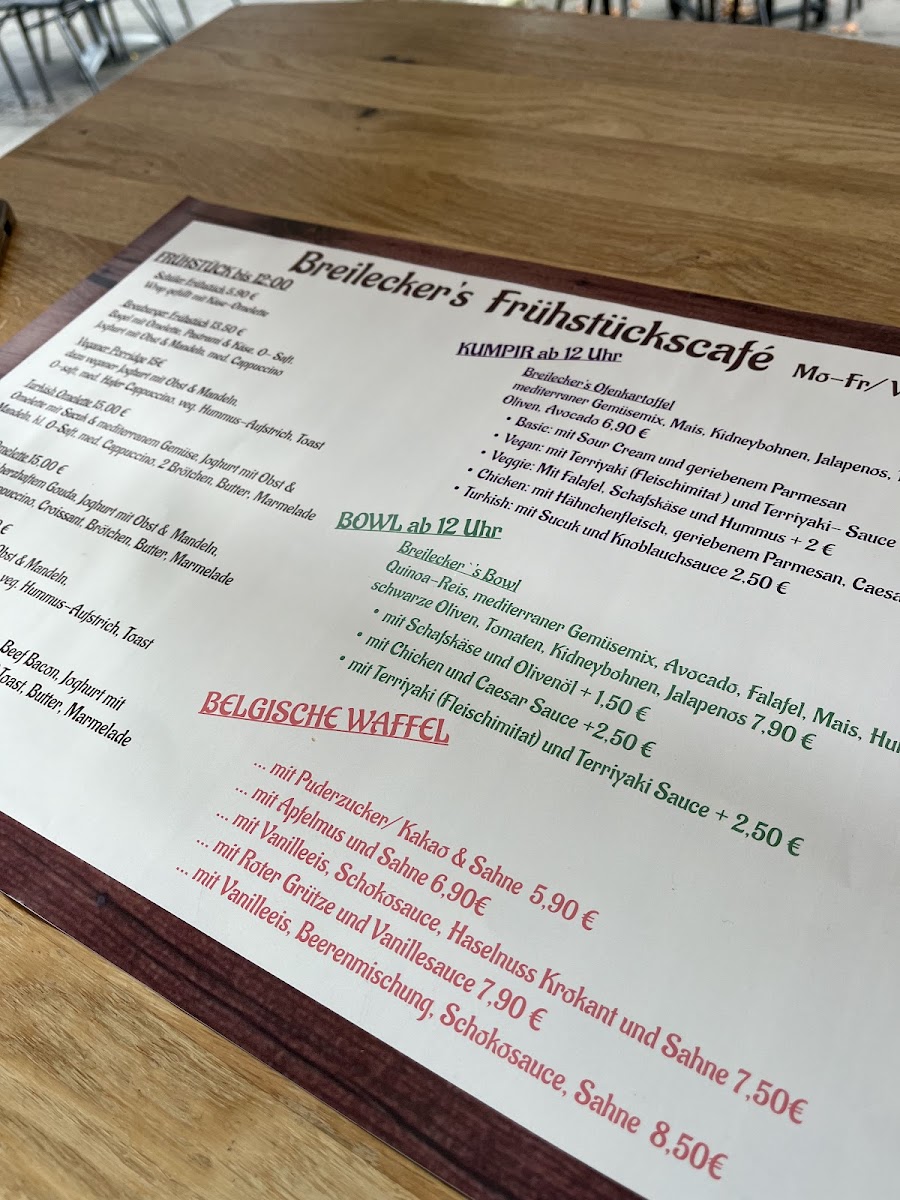 Breilecker's Frühstückscafé
Mo-Fr/
FRÜHSTÜCK bis 12:00
Schüler Frühstück 5,90 €
Wrap gefüllt mit Käse-Omelette
Breuberger Frühstück 13,50 €
Bagel mit Omelette, Pastrami & Käse, O-Saft,
Joghurt mit Obst & Mandeln, med. Cappuccino
Veganer Porridge 15€
dazu veganer Joghurt mit Obst & Mandeln,
O-saft, med. Hafer Cappuccino, veg. Hummus-Aufstrich, Toast
Turkish Omelette 15,00 €
Omelette mit Sucuk & mediterranem Gemüse, Joghurt mit Obst &
Mandeln, kl. O-Saft, med. Cappuccino, 2 Brötchen, Butter, Marmelade
15,00 €
Gouda, Joghurt mit Obst & Mandeln,
Croissant, Brötchen, Butter, Marmelade
€
Obst & Mandeln,
veg. Hummus-Aufstrich, Toast
Beef Bacon, Joghurt mit
Toast, Butter, Marmelade
KUMPIR ab 12 Uhr
Breilecker's Ofenkartoffel
mediterraner Gemüsemix, Mais, Kidneybohnen, Jalapenos,
Oliven, Avocado 6,90 €
• Basic: mit Sour Cream und geriebenem Parmesan
• Vegan: mit Terriyaki (Fleischimitat ) und Terriyaki- Sauce
• Veggie: Mit Falafel, Schafskäse und Hummus + 2 €
• Chicken: mit Hähnchenfleisch, geriebenem Parmesan,
• Turkish: mit Sucuk und Knoblauchsauce 2,50 €
BOWL ab 12 Uhr
Breilecker`'s Bowl
Quinoa-Reis, mediterraner Gemüsemix, Avocado, Falafel, Mais,
schwarze Oliven, Tomaten, Kidneybohnen, Jalapenos 7,90 €
• mit Schafskäse und Olivenöl + 1,50 €
• mit Chicken und Caesar Sauce +2,50 €
• mit Terriyaki (Fleischimitat) und Terriyaki Sauce + 2,50 €
BELGISCHE WAFFEL
... mit Puderzucker/ Kakao & Sahne 5,90 €
... mit Apfelmus und Sahne 6,90€
... mit Vanilleeis, Schokosauce, Haselnuss Krokant und Sahne 7,50€
... mit Roter Grütze und Vanillesauce 7,90 €
... mit Vanilleeis, Beerenmischung, Schokosauce, Sahne 8,50€